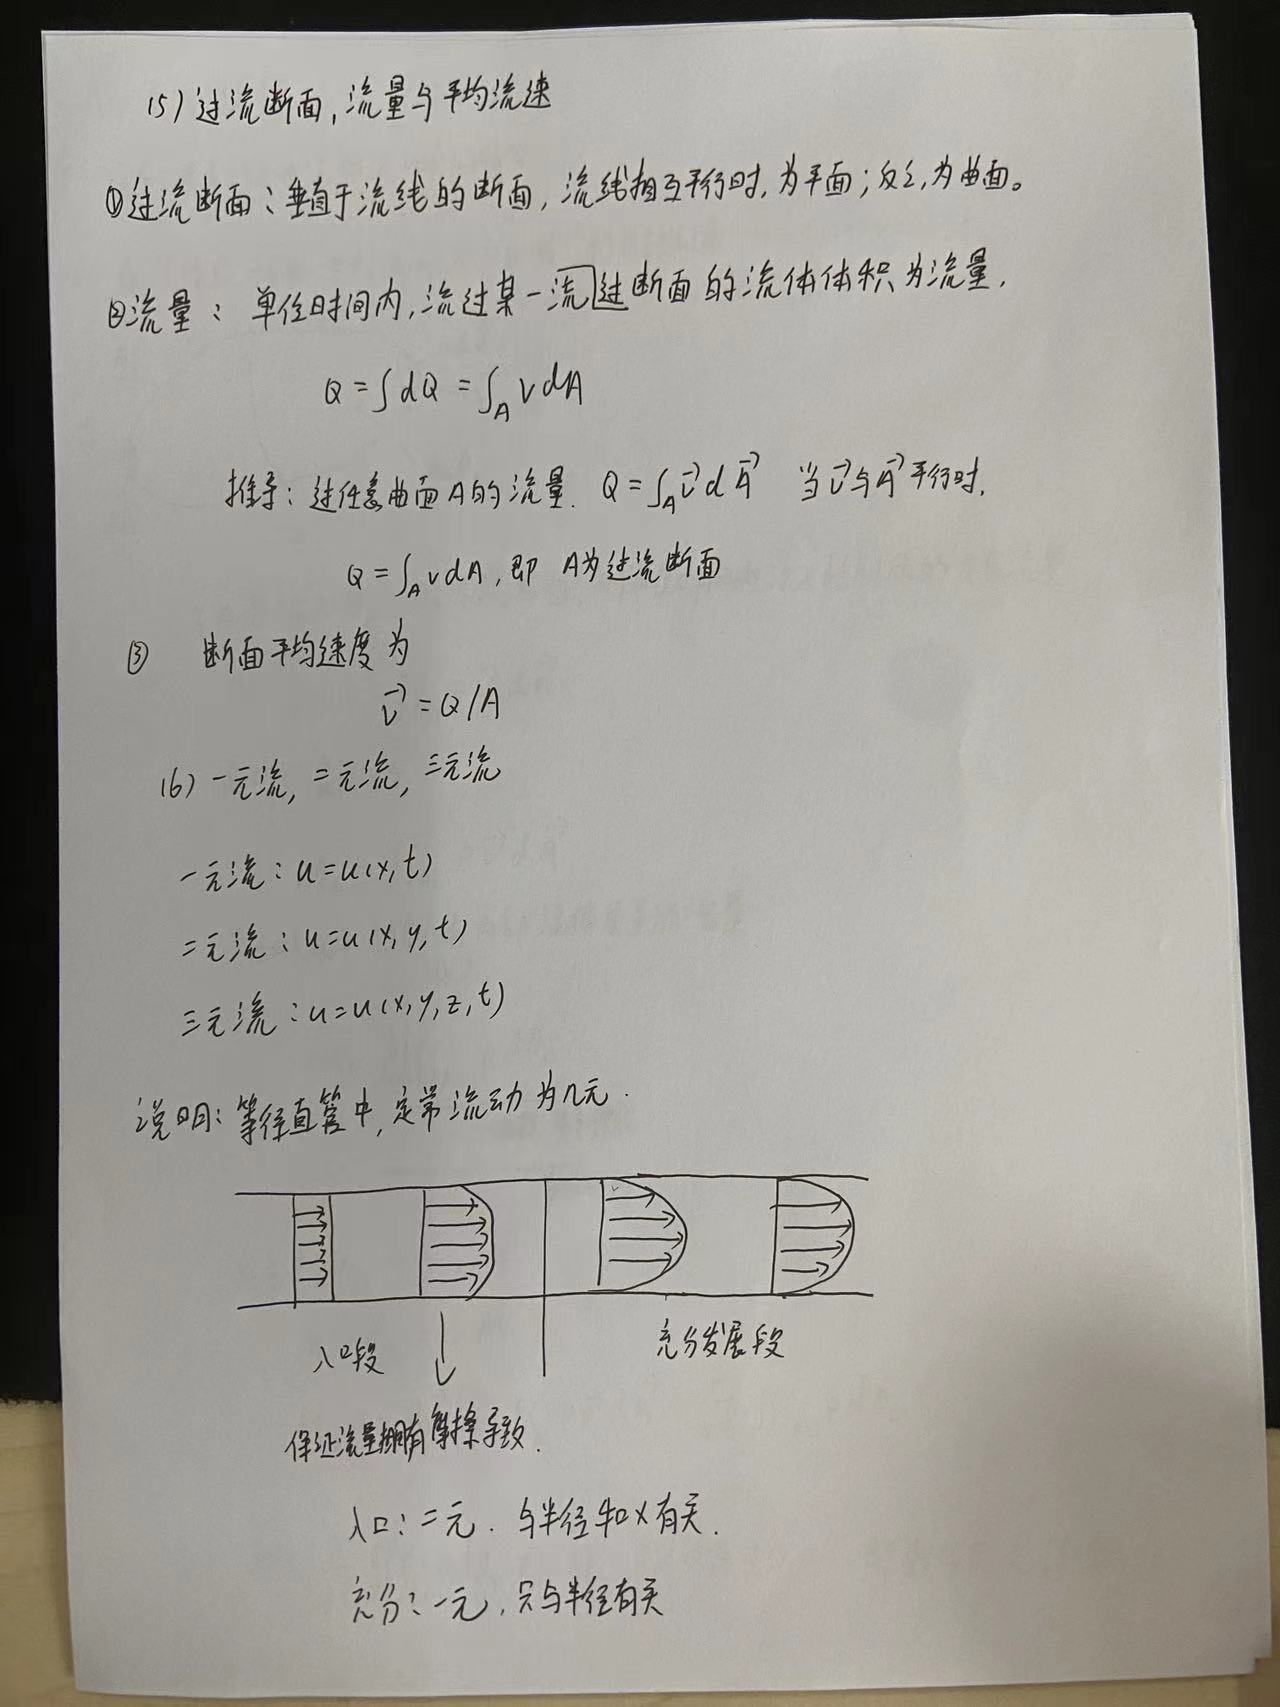 (5) 过流断面,流量与平均流速
①过流断面:垂直于流线的断面,流线相互平行时,为平面;反之,为曲面。
②流量: 单位时间内,流过某一流过断面的流体体积为流量.
Q=∫dQ=∫_A vdA
推导:过任意曲面A的流量. Q=∫_A v⃗ dA⃗ 当v⃗与A⃗平行时.
Q=∫_A vdA,即 A为过流断面
③ 断面平均速度为
v⃗=Q/A
(6) 一元流,二元流,三元流
一元流:u=u(x,t)
二元流:u=u(x,y,t)
三元流:u=u(x,y,z,t)
说明:等径直管中,定常流动为几元.
入口段 充分发展段
保证流量拥有摩擦导致.
入口:二元.与半径和x有关.
充分:一元,只与半径有关